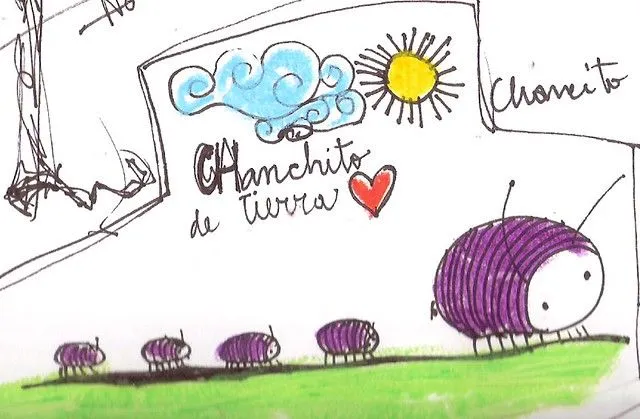 CHanchito
de Tierra
Chancito